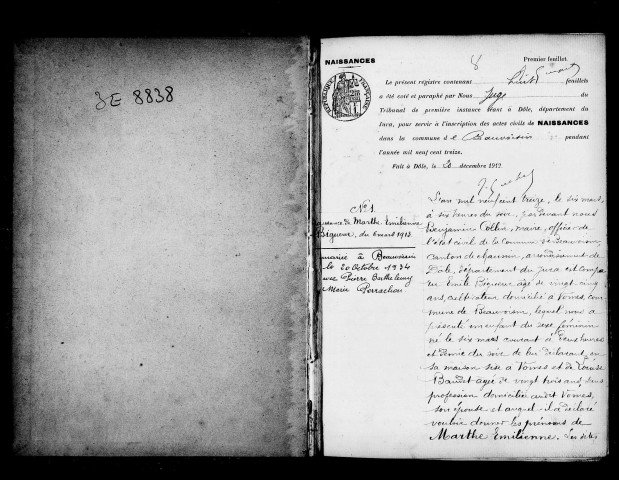 3E 8838
NAISSANCES
8
Premier feuillet.
Le présent régistre contenant huit feuillets
a été coté et paraphé par Nous Juge du
Tribunal de première instance séant à Dôle, département du
Jura, pour servir à l'inscription des actes civils de NAISSANCES
dans la commune de Beauvoisin pendant
l'année mil neuf cent treize.
Fait à Dôle, le 20 décembre 1912.
REPUBLIQUE FRANÇAISE
No 1
Naissance de Marthe Emilienne
Bégueux, du 6 mars 1913.
mariée à Beauvoisin
le 20 octobre 1934
avec Pierre Barthélemy
Marie Perrachon
L'an mil neuf cent treize, le six mars,
à six heures du soir, par devant nous
Benjamin Collin, maire, officier de
l'état civil de la commune de Beauvoisin,
canton de Chaussin, arrondissement de
Dôle, département du Jura est compa
ru Emile Bégueux âgé de vingt cinq
ans, cultivateur domicilié à Vornes, com
mune de Beauvoisin, lequel nous a
présenté un enfant du sexe féminin
né le six mars courant à deux heures
et demie du soir de lui déclarant, en
sa maison sise à Vornes et de Louise
Baudet âgée de vingt trois ans, sans
profession domiciliée audit Vornes,
son épouse et auquel il a déclaré
vouloir donner les prénoms de
Marthe Emilienne. Les dites